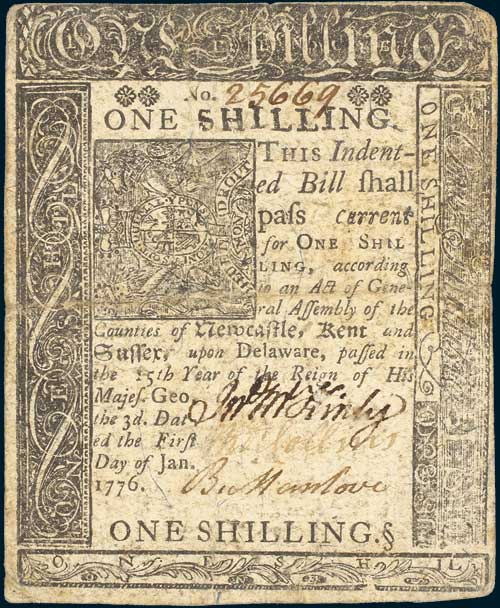 One Shilling
No. 25669
ONE SHILLING.
THIS Indent-
ed Bill ſhall
paſs current
for ONE SHIL
LING, according
to an Act of Gene-
ral Aſſembly of the
Counties of Newcaſtle, Kent and
Suſſex, upon Delaware, paſſed in
the 15th Year of the Reign of His
Majeſ. Geo.
the 3d. Dat
ed the Firſt
Day of Jan.
1776.
Jno McKinly
Bo Manlove
ONE SHILLING.§
ONE SHILLING
O N E S H IL